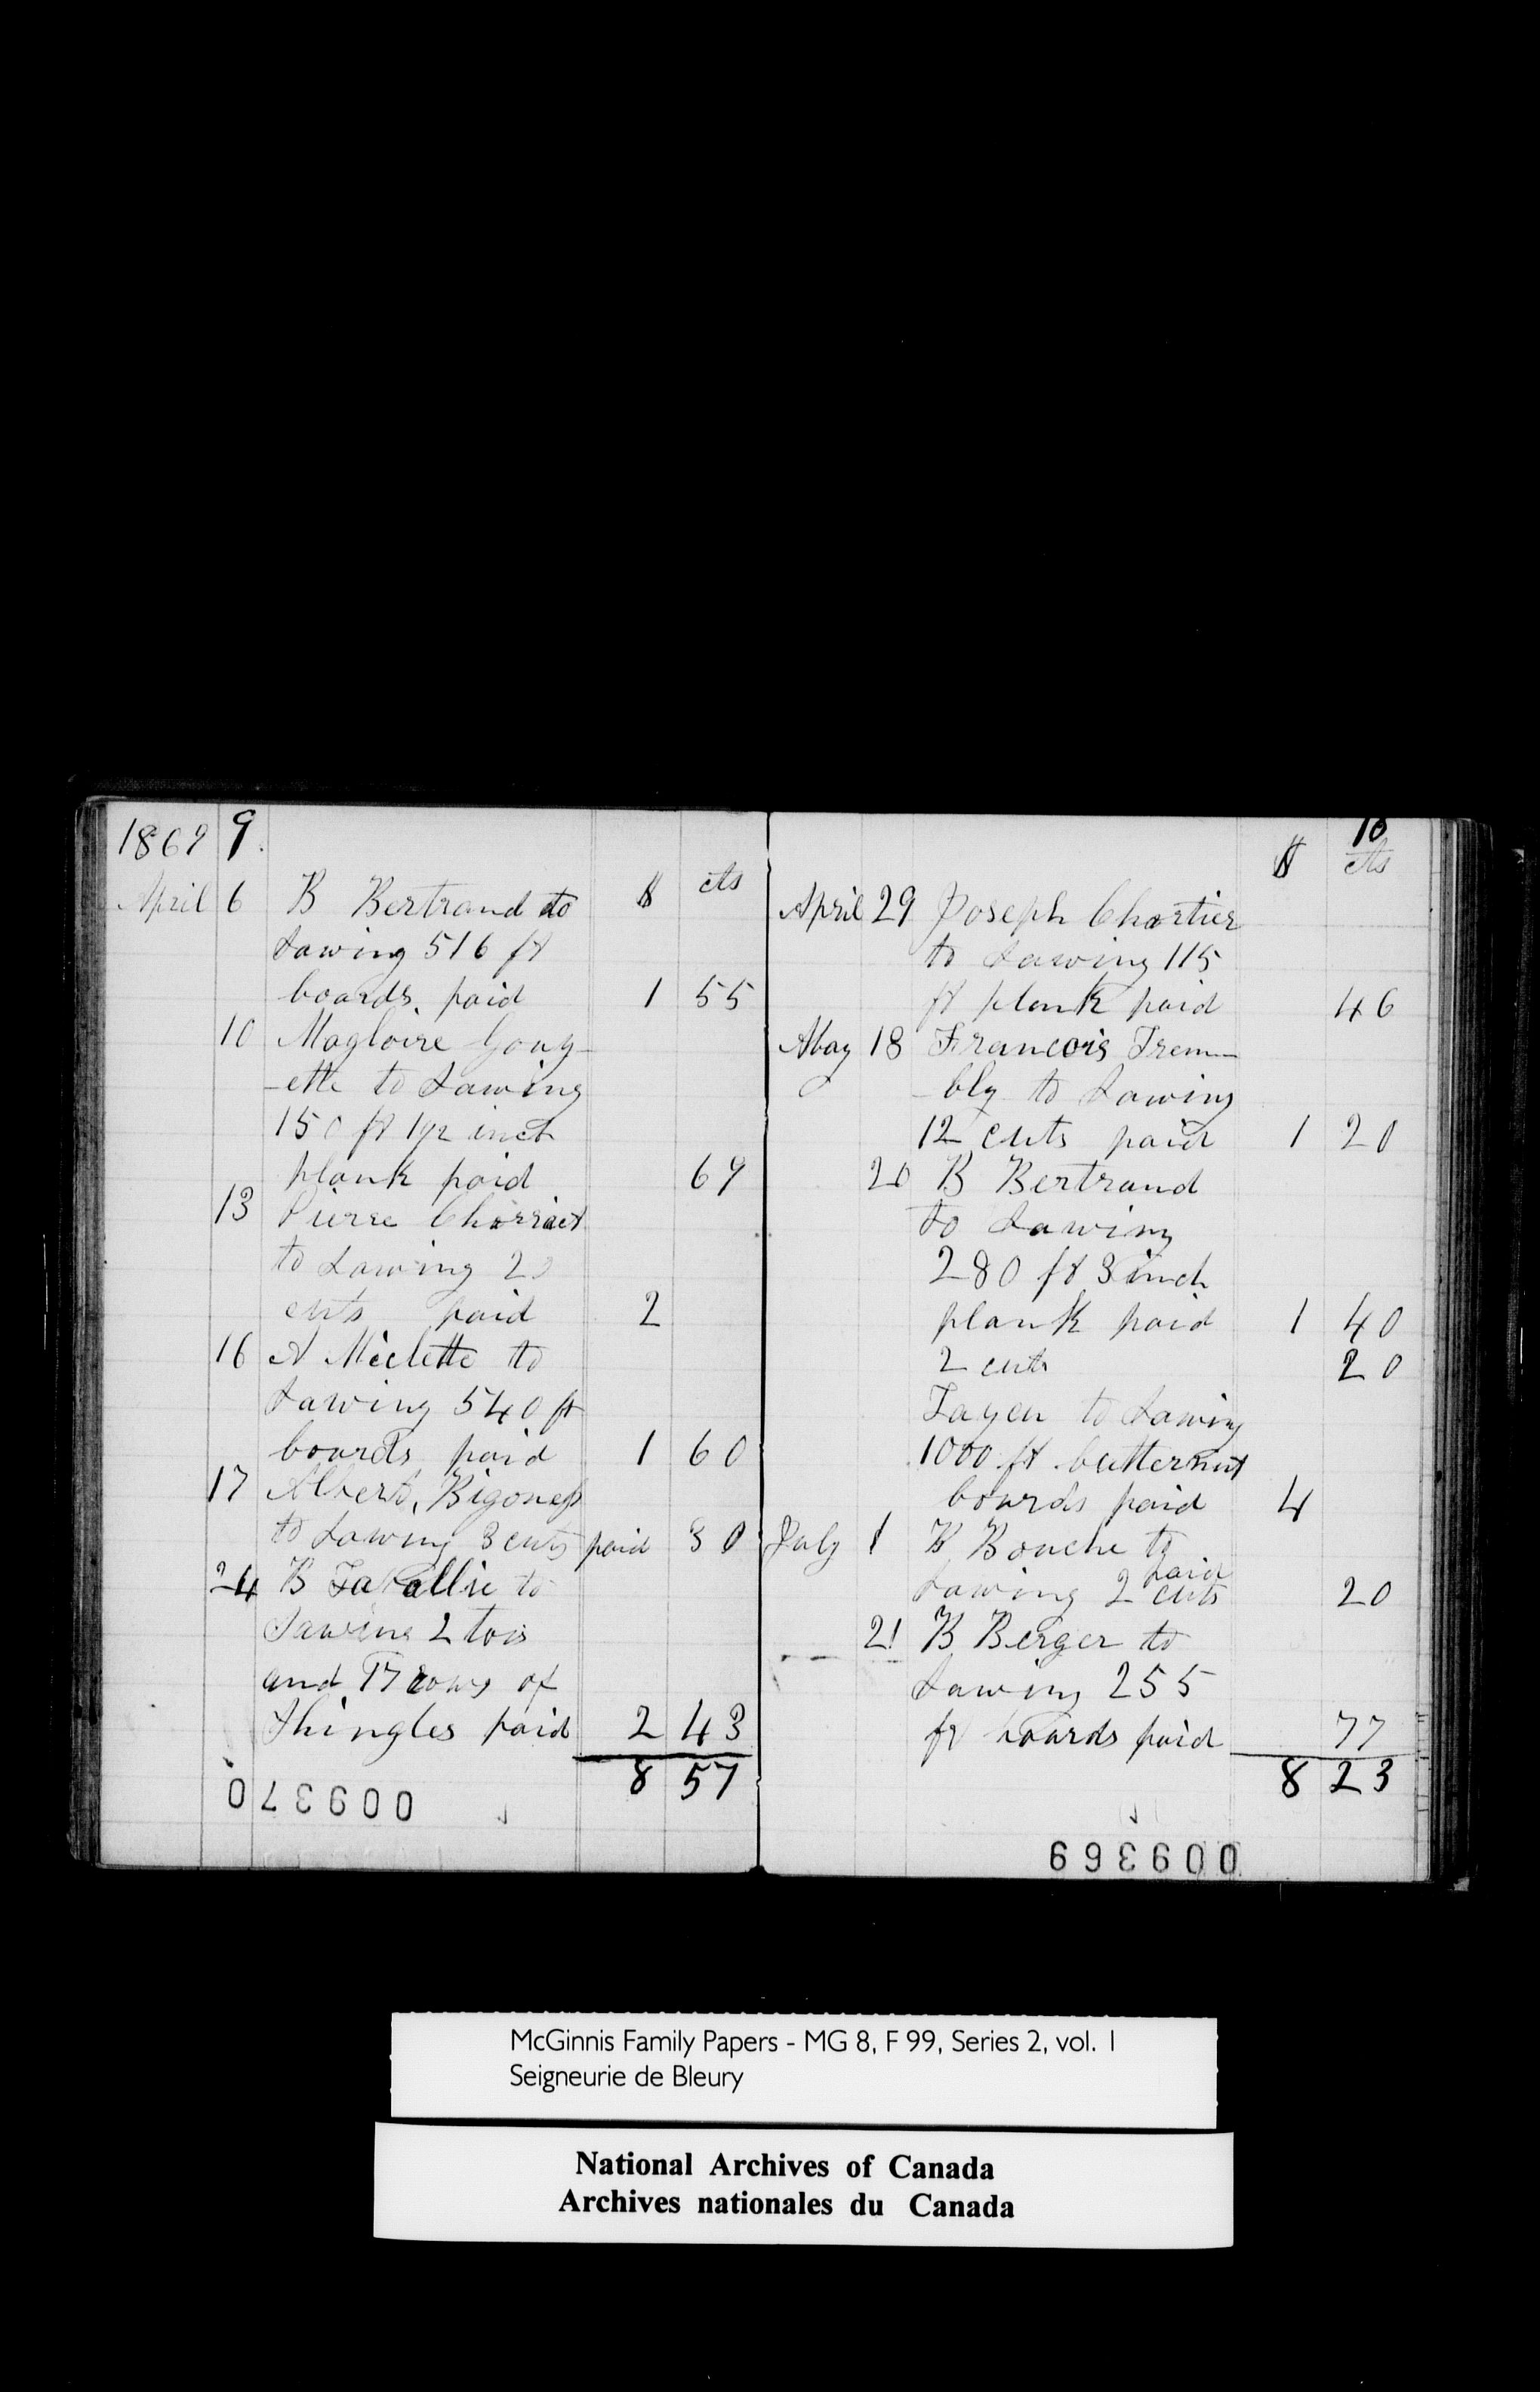 1869 9.
$ cts
April 6 B Bertrand to
sawing 516 ft
boards paid 1 55
10 Magloire Gouy-
-ette to sawing
150 ft 1 1/2 inch
plank paid 69
13 Pierre
to sawing 20
cuts paid 2
16 A Miclette to
sawing 540 ft
boards paid 1 60
17 Albert, Bigoness
to sawing 3 cuts paid 30
24 B to
sawing 2 tois
and 17 rows of
Shingles paid 2 43
8 57
009370
10
$ cts
April 29 Joseph Chartier
to sawing 115
ft plank paid 46
May 18 Francois Trem-
-bly to sawing
12 cuts paid 1 20
20 B Bertrand
to sawing
280 ft 3 inch
plank paid 1 40
2 cuts 20
Tayen to sawing
1000 ft butternut
boards paid 4
July 1 B Bouche to
sawing 2 cuts paid 20
21 B Berger to
sawing 255
ft boards paid 77
8 23
009369
McGinnis Family Papers - MG 8, F 99, Series 2, vol. 1
Seigneurie de Bleury
National Archives of Canada
Archives nationales du Canada